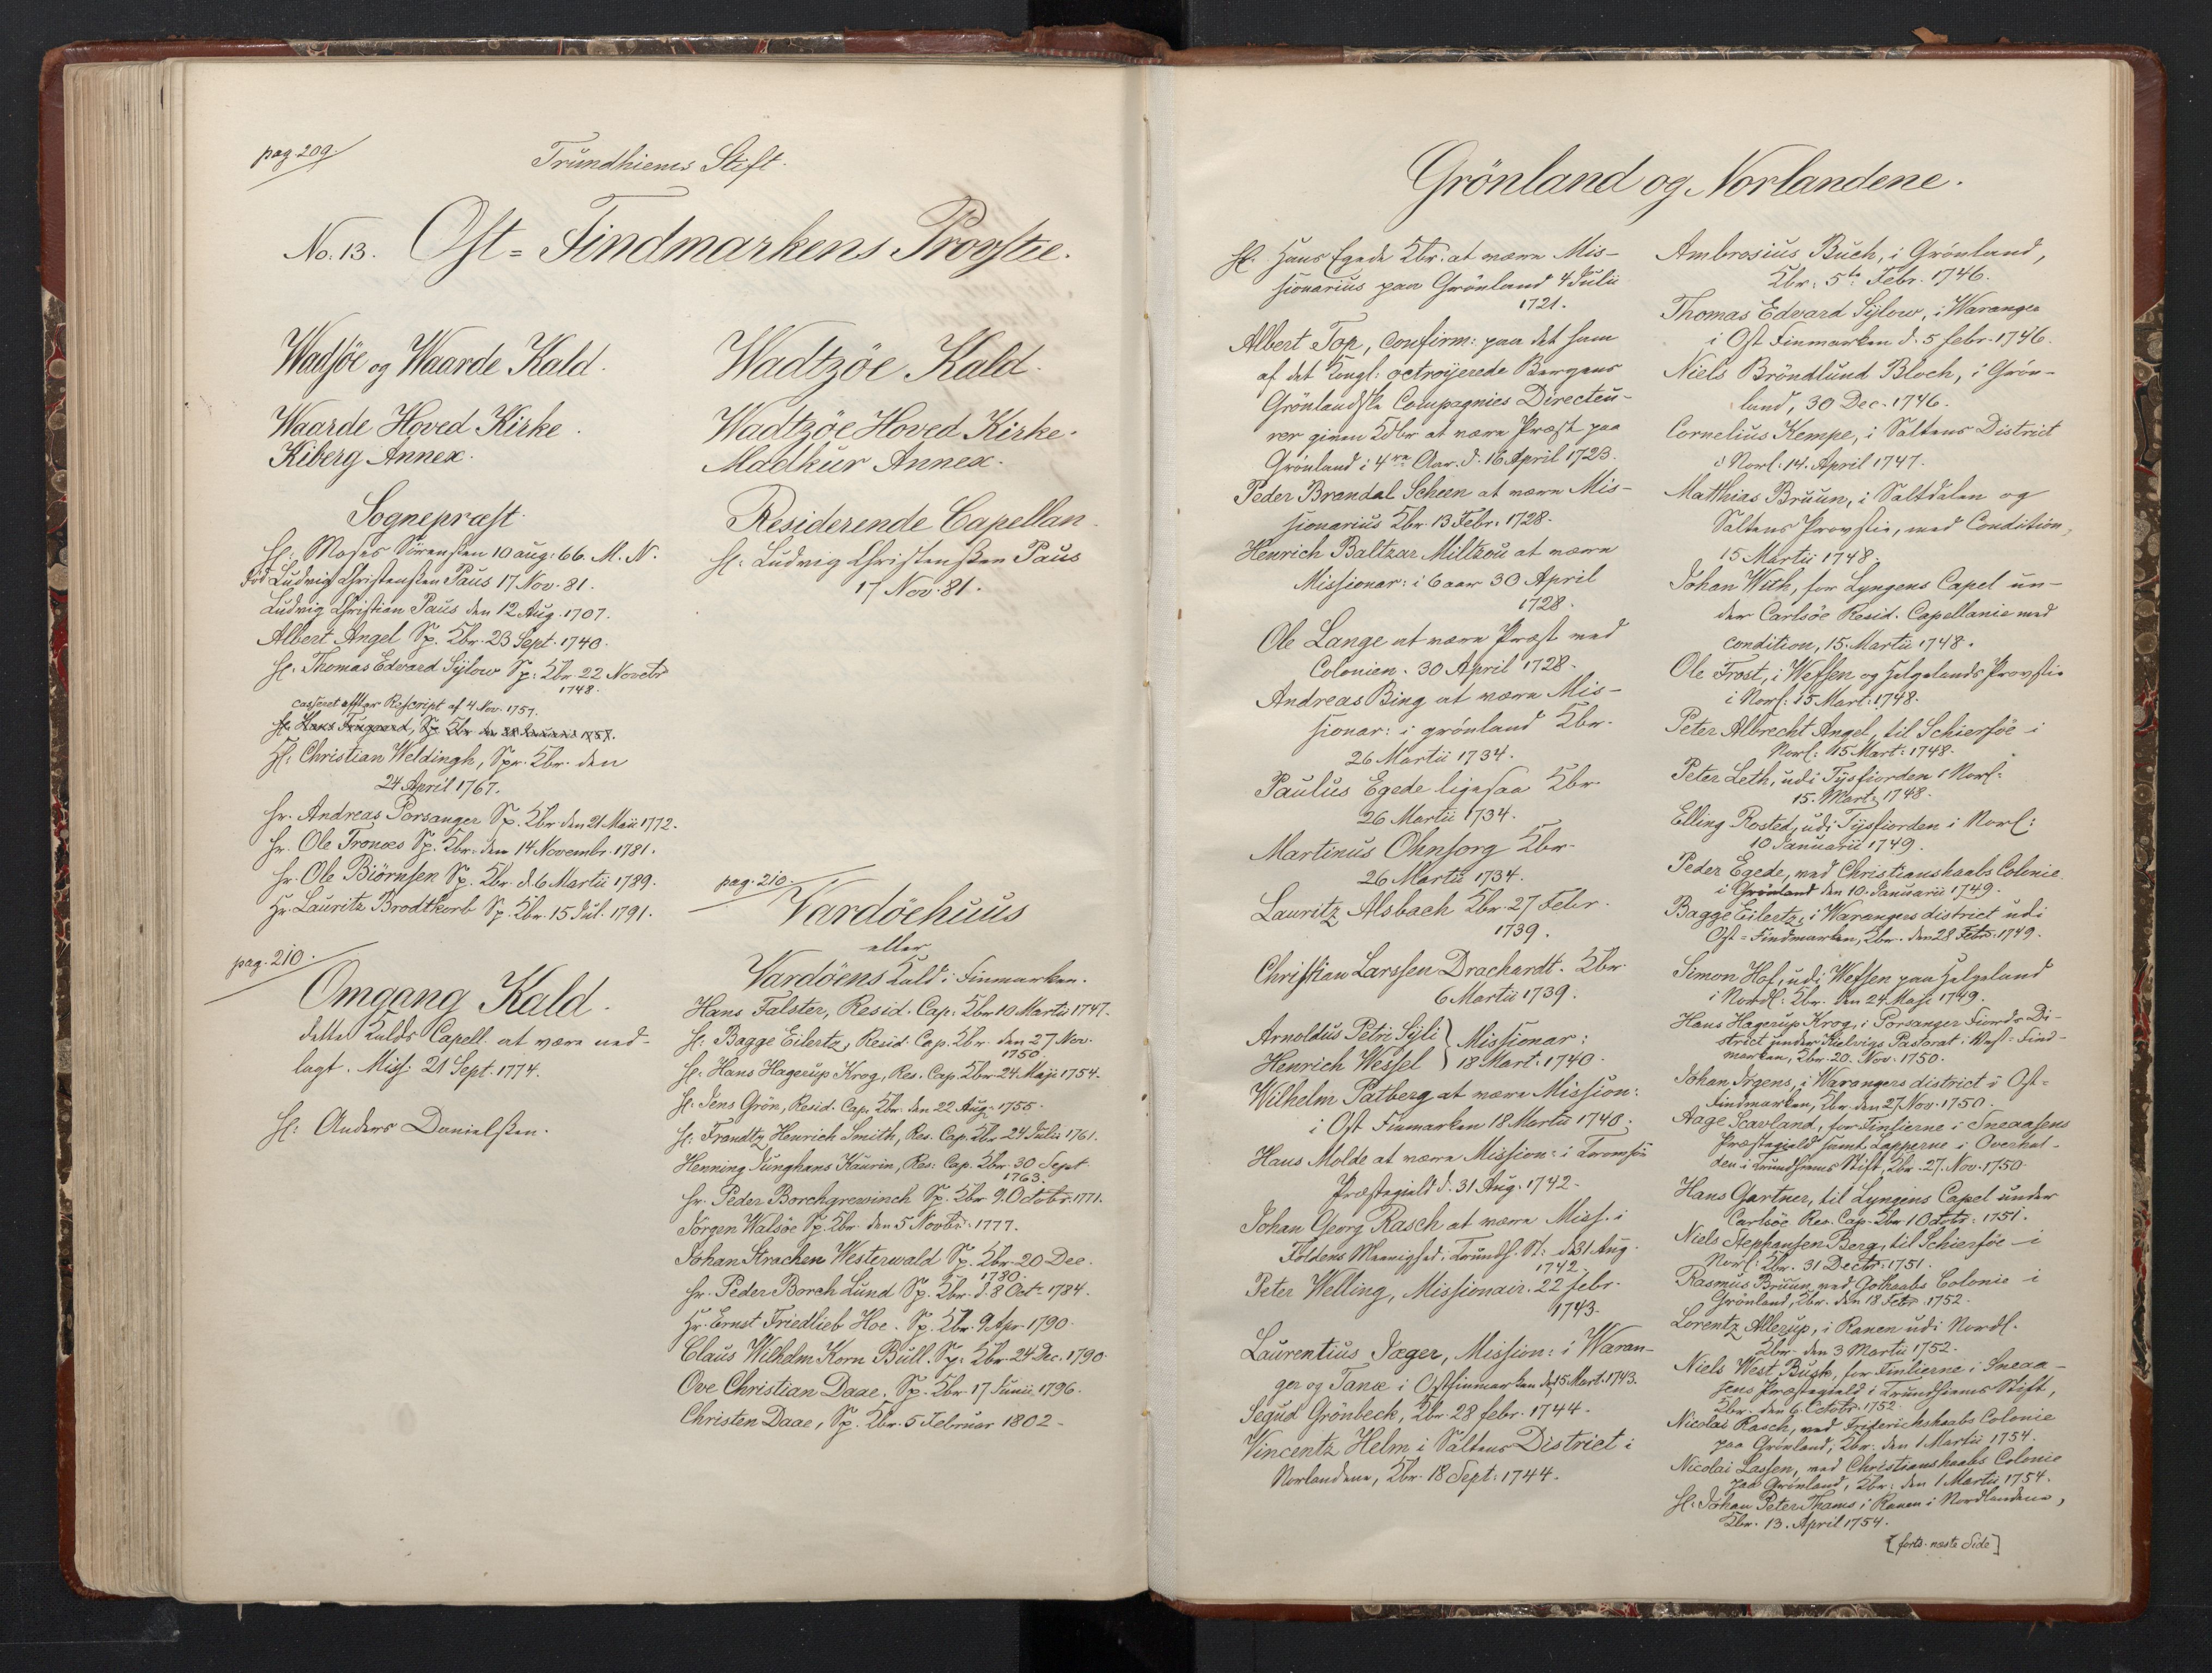 pag. 209.
Trundhiems Stift.
No. 13. Ost-Findmarkens Provstie.
Wadsöe og Waarde Kald.
Waarde Hoved Kirke.
Kiberg Annex.
Sognepræst.
H: Moses Sörensßen 10 aug: 66. M. N.
Ludvig Christensßen Paus 17 Nov. 81.
Ludvig Christian Paus den 12 Aug. 1707.
Albert Angel Sp. Kbr. 23 Sept. 1740.
H: Thomas Edvard Sÿlow Sp: Kbr. 22 Novebr
1748.
casseret effter Rescript af 4 Nov. 1757.
H: Christian Weldingh, Spr. Kbr. den
24 April 1767.
Hr. Andreas Porsanger Sp. Kbr den 21 Maii 1772.
Hr. Ole Tronæs Sp. Kbr. den 14 Novembr. 1781.
Hr. Ole Biörnsen Sp. Kbr. d. 6 Martii 1789.
Hr. Lauritz Brodtkorb Sp. Kbr. 15 Jul. 1791.
pag. 210.
Omgang Kald.
dette Kalds Capell. at være ned-
lagt. Miss: 21 Sept. 1774.
H: Anders Danielsßen.
Wadtzöe Kald.
Wadtzöe Hoved Kirke.
Madkur Annex.
Residerende Capellan.
H: Ludvig Christensßen Paus
17 Nov. 81.
pag. 210.
Vardöehuus
eller
Vardöens Kald i Finmarken.
Hans Falster, Resid. Cap: Kbr 10 Martii 1747.
H: Bagge Eilertz, Resid. Cap. Kbr. den 27 Nov.
1750.
H: Hans Hagerup Krog, Res. Cap. Kbr. 24 Maji 1754.
H: Jens Grön, Resid. Cap. Kbr. den 22 Aug. 1755.
H: Frandtz Henrich Smith, Res. Cap. Kbr 24 Julii 1761.
Henning Junghans Kaurin, Res: Cap. Kbr. 30 Sept.
1763.
Hr. Peder Borchgrewinch Sp. Kbr 9. Octobr. 1771.
Jörgen Walsöe Sp. Kbr. den 5 Novbr. 1777.
Johan Strachen Westerwald Sp. Kbr. 20 Dec.
1780.
Hr. Peder Borch Lund Sp. Kbr. d. 8 Octr. 1784.
Hr. Ernst Friedlieb Hoe. Sp. Kbr. 9 Apr. 1790.
Claus Wilhelm Korn Bull. Sp: Kbr. 24 Dec. 1790.
Ove Christian Daae. Sp. Kbr. 17 Junii 1796.
Christen Daae, Sp. Kbr. 5 Februar 1802.
Grönland og Norlandene.
H. Hans Egede Kbr. at være Mis-
sionarius paa Grönland 4 Julii
1721.
Albert Top, confirm: paa det ham
af det Kongl: octroÿerede Bergens
Grönlandske Compagnies Directeu-
rer given Kdbr at være Præst paa
Grönland i 4re Aar. d. 16 April 1723.
Peder Brandal Scheen at være Mis-
sionarius Kbr. 13 Febr. 1728.
Henrich Baltzar Miltzou at være
Missionar: i 6 aar 30 April
1728.
Ole Lange at være Præst med
Colonien. 30 April 1728.
Andreas Bing at være Mis-
sionar: i grönland Kbr.
26 Martii 1734.
Paulus Egede ligesaa Kbr.
26 Martii 1734.
Martinus Ohnsorg Kbr.
26 Martii 1734.
Lauritz Alsbach Kbr. 27 Febr.
1739.
Christian Larssen Drachardt. Kbr.
6 Martii 1739.
Arnoldus Petri Sÿli } Missionar:
Henrich Wessel } 18 Mart. 1740.
Wilhelm Patberg at være Mission:
i Ost Finmarken 18 Martii 1740.
Hans Molde at være Mission: i Tromsöe
Præstegield d. 31 Aug. 1742.
Johan Georg Rasch at være Miss. i
Foldens Menighed i Trundh. St: d. 31 Aug.
1742.
Peter Welling, Missionair. 22 febr.
1743.
Laurentius Jæger, Mission: i Waran-
ger og Tanæ i Ostfinmarken d. 15 Mart. 1743.
Segud Grönbeck, Kbr. 28 febr. 1744.
Vincentz Helm i Saltens District i
Norlandene, Kbr. 18 Sept. 1744.
Ambrosius Buch, i Grönland,
Kbr. 5te Febr. 1746.
Thomas Edvard Sÿlow, i Waranger
i Ost Finmarken d. 5 febr. 1746.
Niels Bröndlund Bloch, i Grön-
land, 30 Dec. 1746.
Cornelius Kempe, i Saltens District
i Norl: 14. April 1747.
Matthias Bruun, i Saltdalen og
Saltens Provstie, med Condition,
15 Martii 1748.
Johan With, for Lyngens Capel un-
der Carlsöe Resid. Capellanie med
condition, 15. Martii 1748.
Ole Frost, i Wefsen og Helgelands Provstie
i Norl: 15 Mart: 1748.
Peter Albrecht Angel, til Schierföe i
Norl: 15 Mart: 1748.
Peter Leth, udi Tÿsfiorden i Norl:
15. Marti 1748.
Elling Rosted, udi Tÿsfiorden i Norl:
10 Januarii 1749.
Peder Egede, ved Christianshaabs Colonie
i Grönland den 10. Januarii 1749.
Bagge Eilertz, i Warangers district udi
Ost-Findmarken, Kbr. den 28 Febr. 1749.
Simon Hof, udi Wefsen paa Helgeland
i Nordl: Kbr. den 24 Maji 1749.
Hans Hagerup Krog, i Porsanger Fiords Di-
strict under Kielvigs Pastorat i West-Find-
marken, Kbr. 20. Nov. 1750.
Johan Irgens, i Warangers district i Ost-
Findmarken, Kbr. den 27 Nov. 1750.
Aage Scavland, for Finlierne i Sneaasens
Præstegield samt Lapperne i Overhal-
den i Trundhiems Stift, Kbr. 27. Nov. 1750.
Hans Gartner, til Lyngens Capel under
Carlsöe Res. Cap. Kbr 1 Octobr: 1751.
Niels Stephansen Berg, til Schierföe i
Norl: Kbr. 31 Decbr. 1751.
Rasmus Bruun, ved Gothaabs Colonie i
Grönland, Kbr. den 18 Febr. 1752.
Lorentz Allerup, i Ranen udi Nordl.
Kbr. den 3 Martii 1752.
Niels West Busk, for Finlierne i Sneaa-
sens Præstegield i Trundhiems Stift,
Kbr. den 6. Octobr. 1752.
Nicolai Rasch, ved Friderichshaabs Colonie
paa Grönland, Kbr. den 1 Martii 1754.
Nicolai Lassen, ved Christianshaabs Colonie
paa Grönland, Kbr: den 1 Martii 1754.
H: Johan Peter Thams i Ranen i Nordlandene,
Kbr. 13. April 1754.
[forts. næste Side]